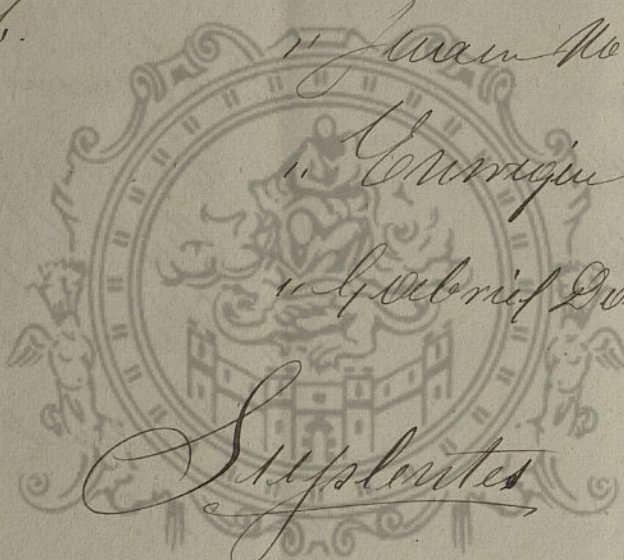 " Juan
" Enrique
" Gabriel
Suplentes